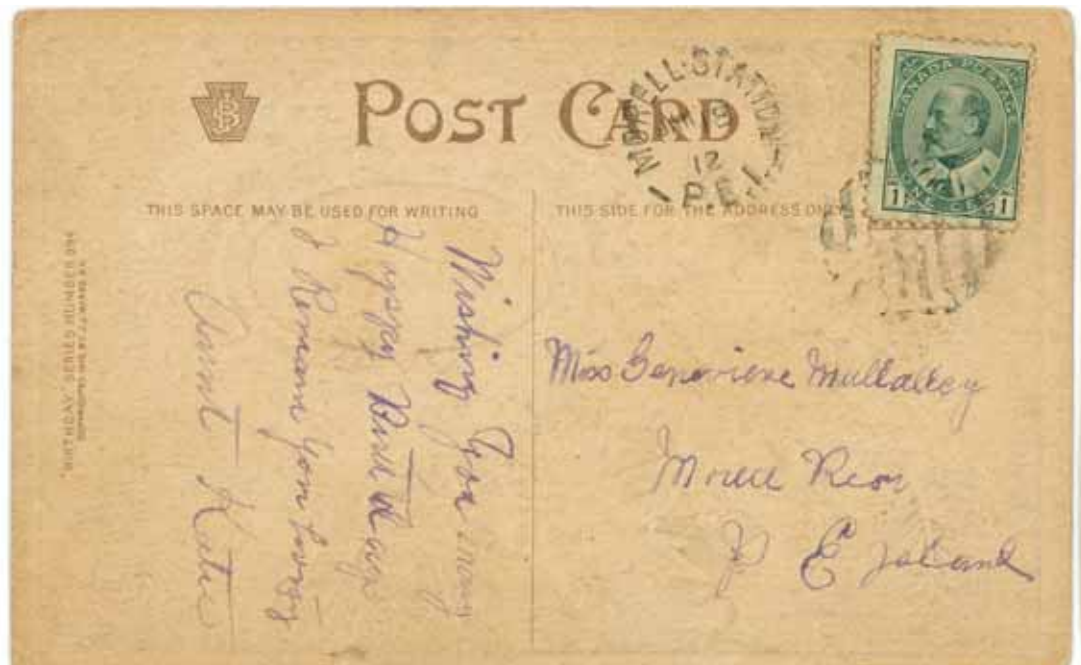 POST CARD
MORELL·STATION
12
P.E.I.
CANADA POSTAGE
1 ONE CENT 1
THIS SPACE MAY BE USED FOR WRITING
THIS SIDE FOR THE ADDRESS ONLY
BIRTHDAY SERIES NUMBER
Wishing You many
Happy Birth days
I Remain your loving
Aunt Katie
Miss Genevieve Mullalley
P E Island